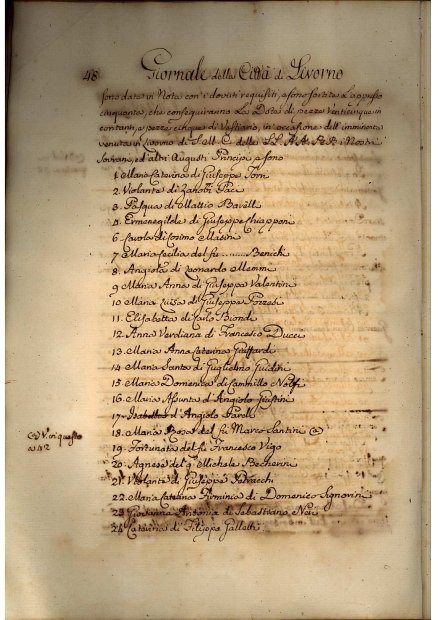 48 Giornale della Città di Livorno
sono date in Nota con i dovuti requisiti, e sono sortite L'appresso
cinquanta, che conseguiranno La Dote di pezze Venticinque in
contanti, e pezze cinque di Vestiario, in occasione dell'imminente
venuta in Livorno di S. M. C. delle LL. AA. RR. i Nostri
Sovrani, ed altri Augusti Principi e sono
1. Maria Caterina di Giuseppe
2. Violante di Zanobi Paci
3. Pasqua di Mattio
5. Ermenegilde di Giuseppe Chiappori
6. Carola di Cosimo Masini
7. Maria Cecilia del fu ......... Benich
8. Angiola di Leonardo Memmi
9. Maria Anna di Giuseppe Valentini
10. Maria Luisa di Giuseppe
11. Elisabetta di Carlo Biondi
12. Anna Verdiana di Francesco Ducci
13. Maria Anna Caterina
14. Maria Santa di Guglielmo Guidini
15. Maria Domenica di Cammillo
16. Maria Assunta d'Angiolo Giustini
17. d'Angiolo Paroli
18. Maria Rosa del fu Marco Santini (a)
(a) V. in questo
a 42
19. Fortunata del fu Francesco Vigo
20. Agnese del q. Michele Becherini
21. Violante di Giuseppe Petracchi
22. Maria Catelina Erminia di Domenico Signorini
23. Giovanna Antonia di Sebastiano Neri
24. Caterina di Filippo Galletti